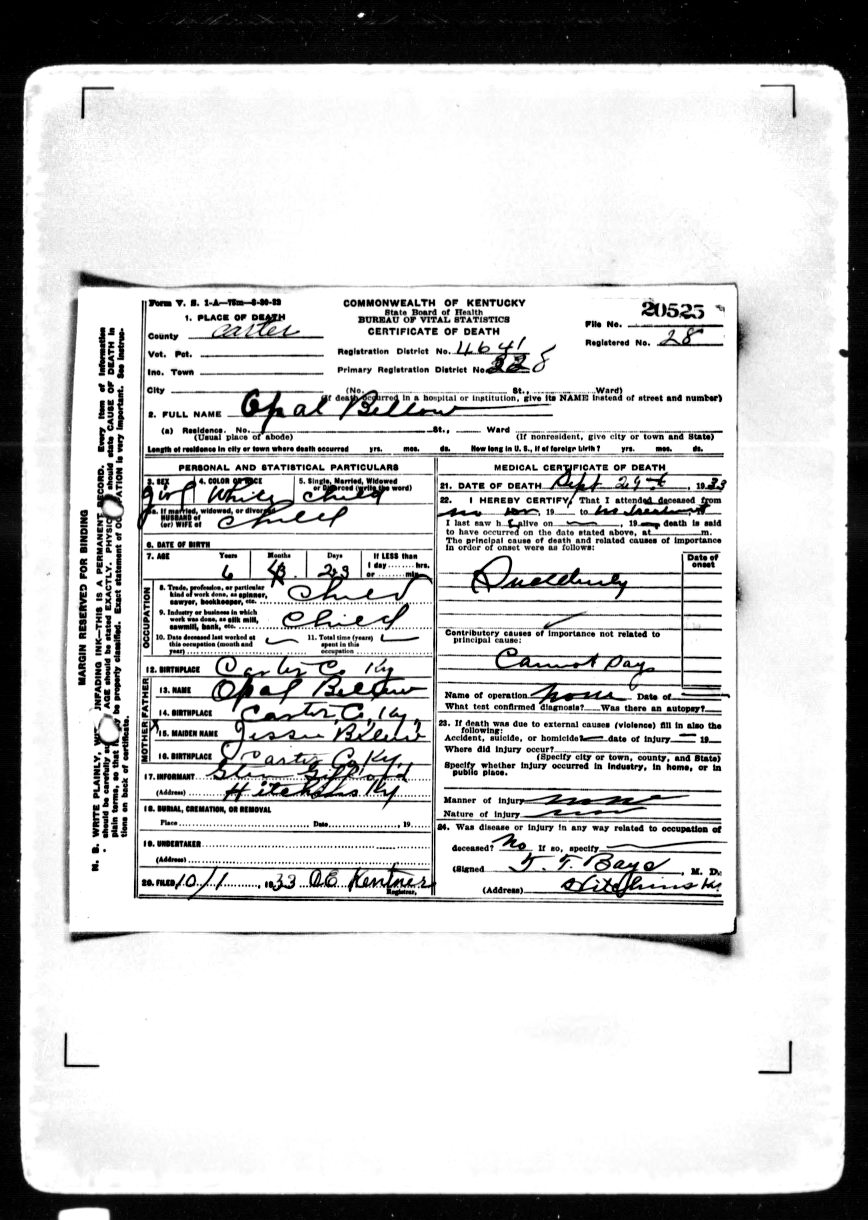 Form V. S. 1-A—75m—8-30-32
COMMONWEALTH OF KENTUCKY
State Board of Health
BUREAU OF VITAL STATISTICS
CERTIFICATE OF DEATH
File No. 20525
Registered No. 28
1. PLACE OF DEATH
County Carter
Registration District No. 4641
Vot. Pct.
Primary Registration District No. 228
Inc. Town
City (No. St., Ward)
(If death occurred in a hospital or institution, give its NAME instead of street and number)
2. FULL NAME Opal Bellow
(a) Residence. No. St., Ward
(Usual place of abode) (If nonresident, give city or town and State)
Length of residence in city or town where death occurred yrs. mos. ds. How long in U. S., if of foreign birth? yrs. mos. ds.
PERSONAL AND STATISTICAL PARTICULARS
3. SEX 4. COLOR OR RACE 5. Single, Married, Widowed or Divorced (write the word)
Girl White Child
5a. If married, widowed, or divorced
HUSBAND of
(or) WIFE of Child
6. DATE OF BIRTH
7. AGE Years Months Days If LESS than
1 day hrs.
6 23 or min.
OCCUPATION
8. Trade, profession, or particular
kind of work done, as spinner,
sawyer, bookkeeper, etc. Child
9. Industry or business in which
work was done, as silk mill,
sawmill, bank, etc. Child
10. Date deceased last worked at
this occupation (month and
year)
11. Total time (years)
spent in this
occupation
12. BIRTHPLACE Carter Co Ky
FATHER
13. NAME Opal Bellow
14. BIRTHPLACE Carter Co, Ky,
MOTHER
15. MAIDEN NAME Jessie
16. BIRTHPLACE Carter Co Ky,
17. INFORMANT
(Address) Hitchins Ky
18. BURIAL, CREMATION, OR REMOVAL
Place Date , 19
19. UNDERTAKER
(Address)
20. FILED 10/1, 1933 OE Kentner
Registrar,
MEDICAL CERTIFICATE OF DEATH
21. DATE OF DEATH Sept 29th, 1933
22. I HEREBY CERTIFY, That I attended deceased from
no , 19 to no treatment
I last saw h alive on , 19 death is said
to have occurred on the date stated above, at m.
The principal cause of death and related causes of importance
in order of onset were as follows:
Date of
onset
Suddenly
Contributory causes of importance not related to
principal cause:
Cannot Say
Name of operation none Date of
What test confirmed diagnosis? Was there an autopsy?
23. If death was due to external causes (violence) fill in also the
following:
Accident, suicide, or homicide? date of injury 19
Where did injury occur?
(Specify city or town, county, and State)
Specify whether injury occurred in industry, in home, or in
public place.
Manner of injury none
Nature of injury
24. Was disease or injury in any way related to occupation of
deceased? No If so, specify
(Signed T. T. Bays, M. D.
(Address) Hitchins Ky
MARGIN RESERVED FOR BINDING